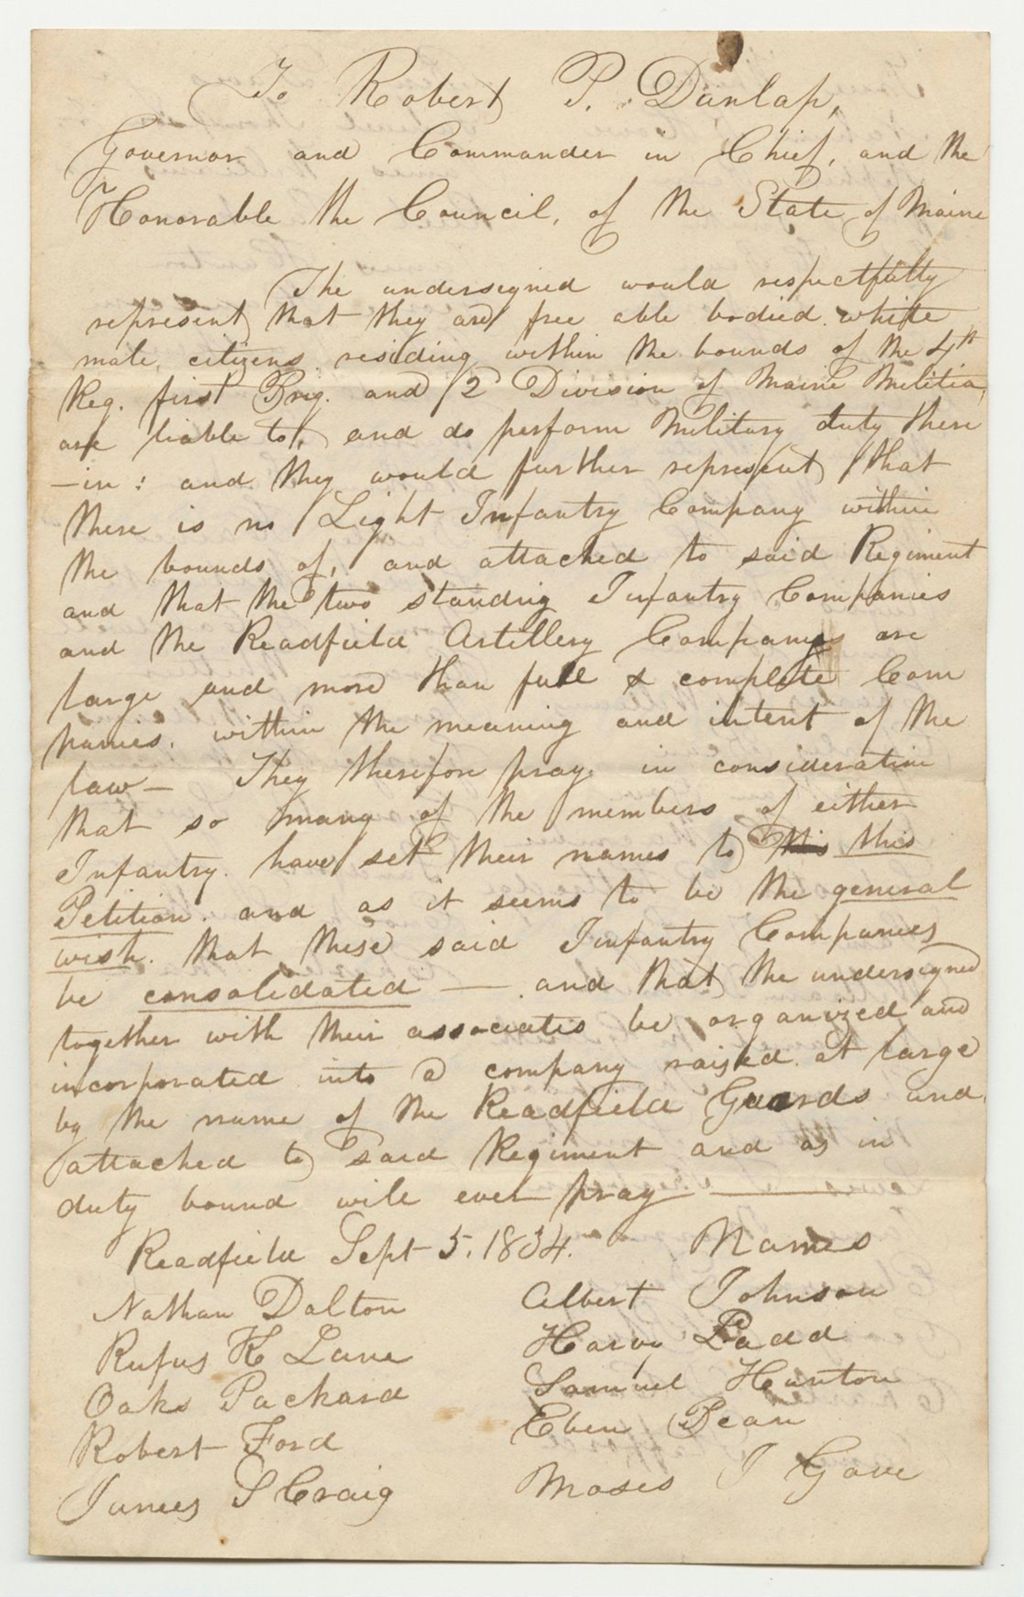 To Robert P. Dunlap,
Governor and Commander in Chief, and the
Honorable the Council, of the State of Maine
The undersigned would respectfully
represent that they are free able bodied white
male citizens residing within the bounds of the 4th
Reg. first Brig. and 2 Division of Maine Militia,
are liable to, and do perform Military duty there
-in: and they would further represent that
there is no Light Infantry Company within
the bounds of, and attached to said Regiment
and that the two standing Infantry Companies
and the Readfield Artillery Company are
large and more than full & complete Com
panies, within the meaning and intent of the
law— They therefore pray in consideration
that so many of the members of either
Infantry have set their names to this this
Petition and as it seems to be the general
wish. that these said Infantry Companies
be consolidated — and that the undersigned
together with their associates be organized and
incorporated into a company raised at large
by the name of the Readfield Guards and
attached to said Regiment and as in
duty bound will ever pray —
Readfield Sept 5. 1834. Names
Nathan Dalton Albert Johnson
Rufus K Lane Harvy Ladd
Oaks Packard Samuel Hunton
Robert Ford Eben Dean
James S Craig Moses J Gove